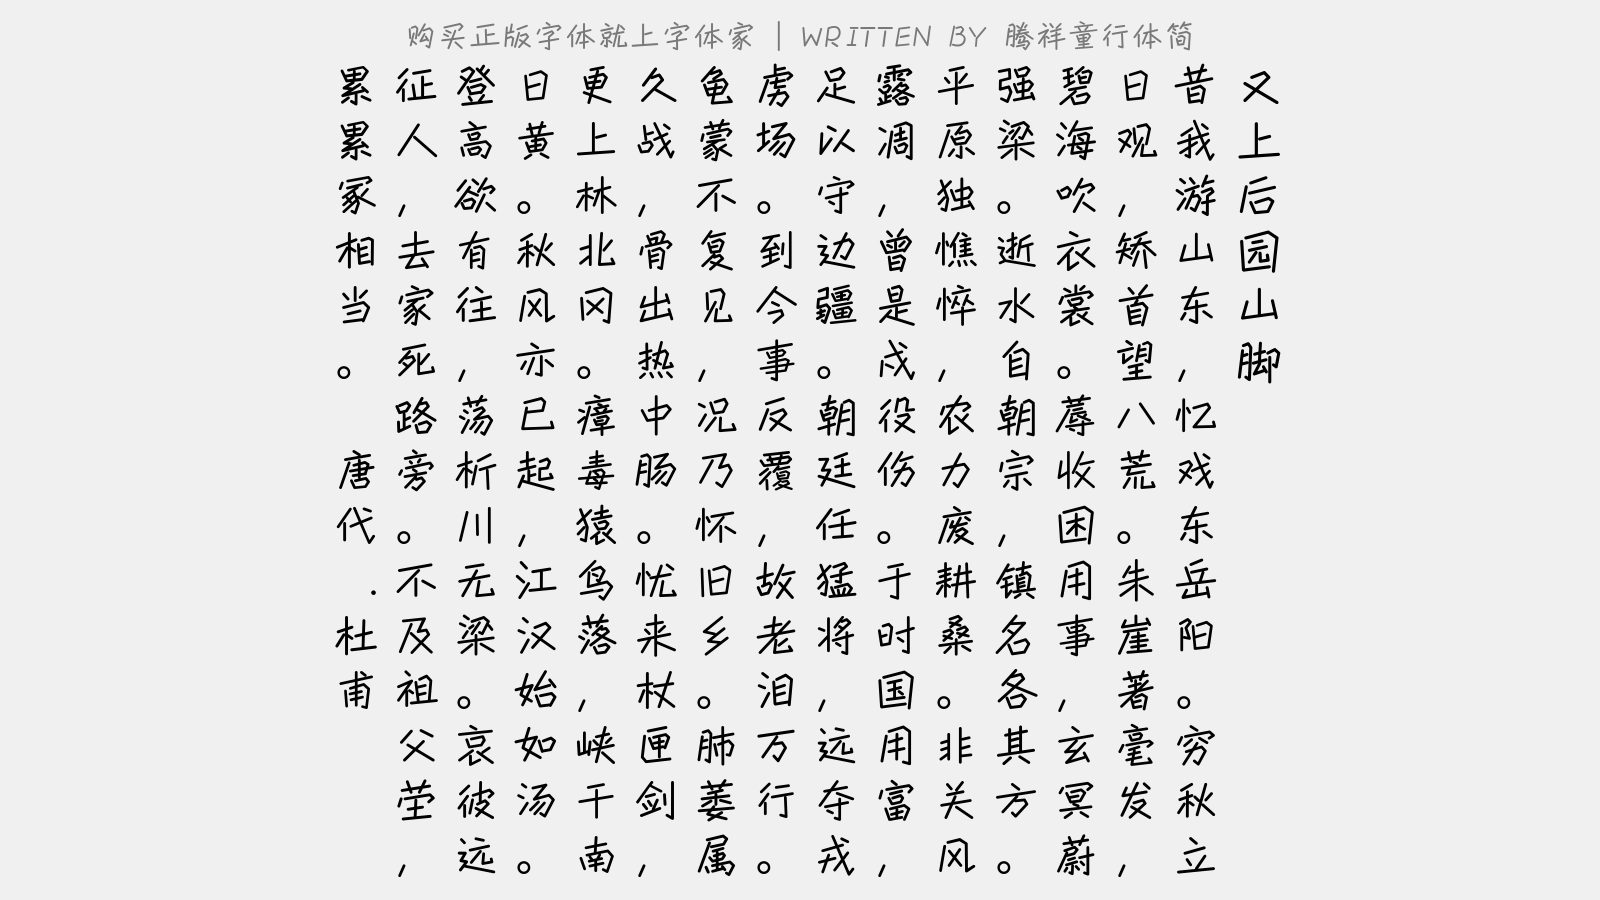 购买正版字体就上字体家 | WRITTEN BY 腾祥童行体简
又上后园山脚
昔我游山东,忆戏东岳阳。穷秋立
日观,矫首望八荒。朱崖著毫发,
碧海吹衣裳。蓐收困用事,玄冥蔚
强梁。逝水自朝宗,镇名各其方。
平原独憔悴,农力废耕桑。非关风
露凋,曾是戍役伤。于时国用富,
足以守边疆。朝廷任猛将,远夺戎
虏场。到今事反覆,故老泪万行。
龟蒙不复见,况乃怀旧乡。肺萎属
久战,骨出热中肠。忧来杖匣剑,
更上林北冈。瘴毒猿鸟落,峡干南
日黄。秋风亦已起,江汉始如汤。
登高欲有往,荡析川无梁。哀彼远
征人,去家死路旁。不及祖父茔,
累累冢相当。 唐代.杜甫